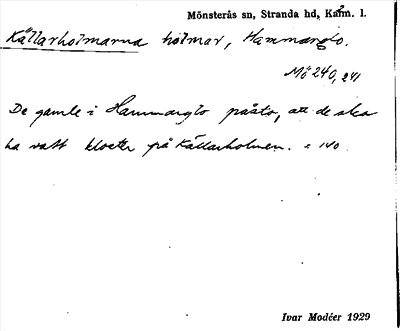 Mönsterås sn, Stranda hd, Kalm. l.
Källarholmarna holmar, Hammarglo.
Mö 240, 241
De gamle i Hammarglo påstå, att de ska
ha vatt kloster på Källarholmen. = 140.
Ivar Modéer 1929